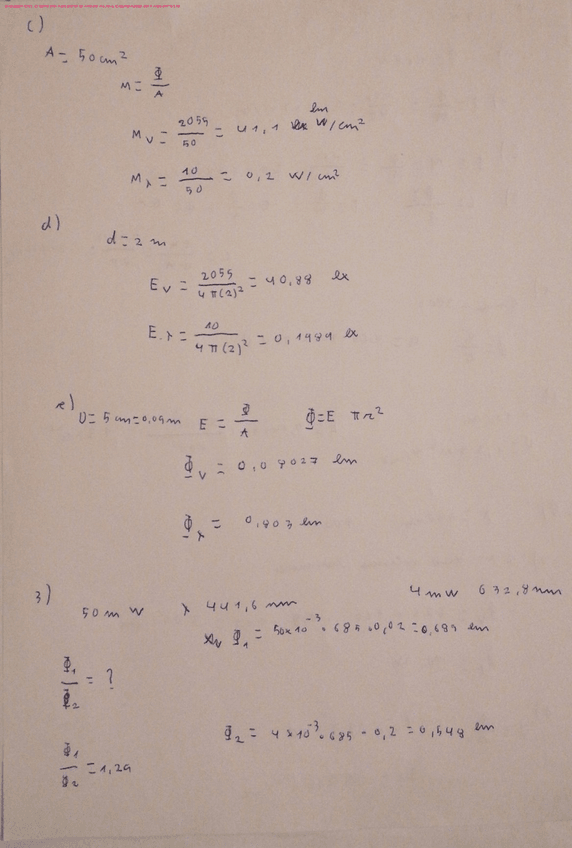 c)
A = 50 cm²
M = Φ/A
M_V = 2055/50 = 41,1 lm/cm²
M_λ = 10/50 = 0,2 W/cm²
d)
d = 2 m
E_V = 2055/4π(2)² = 40,88 lx
E_λ = 10/4π(2)² = 0,1989 lx
e)
D = 5 cm = 0,05 m E = Φ/A Φ = E πr²
Φ_V = 0,08027 lm
Φ_λ = 0,803 lm
3)
50 mW λ 441,6 nm 4 mW 632,8 nm
Φ₁ = 50×10⁻³ · 685 · 0,02 = 0,685 lm
Φ₁/Φ₂ = ?
Φ₂ = 4×10⁻³ · 685 · 0,2 = 0,548 lm
Φ₁/Φ₂ = 1,25